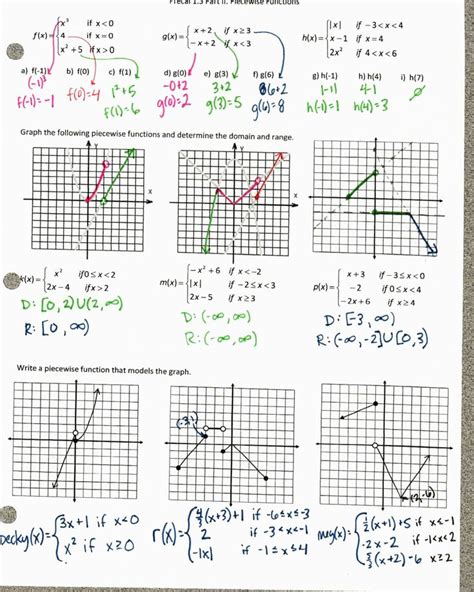 Precal 1.3 Part II: Piecewise Functions
f(x)= { x³ if x < 0
4 if x = 0
x² + 5 if x > 0
g(x)= { x + 2, if x ≥ 3
-x + 2 if x < 3
h(x)= { |x| if -3 < x < 4
x - 1 if x = 4
2x² if 4 < x < 6
a) f(-1) b) f(0) c) f(1) d) g(0) e) g(3) f) g(6) g) h(-1) h) h(4) i) h(7)
(-1)³
f(-1) = -1
f(0)=4
1²+5
f(1)=6
-0+2
g(0)=2
3+2
g(3)=5
6+2
g(6)=8
|-1|
h(-1)=1
4-1
h(4)=3
∅
Graph the following piecewise functions and determine the domain and range.
Y
X
Y
X
k(x)= { x² if 0 ≤ x < 2
2x - 4 if x > 2
D: [0,2)∪(2,∞)
R: [0,∞)
m(x)= { -x² + 6 if x < -2
|x| if -2 ≤ x < 3
2x - 5 if x ≥ 3
D: (-∞,∞)
R: (-∞,∞)
p(x)= { x + 3 if -3 ≤ x < 0
-2 if 0 ≤ x < 4
-2x + 6 if x ≥ 4
D: [-3,∞)
R: (-∞,-2]∪[0,3)
Write a piecewise function that models the graph.
(2,-6)
Decky(x)= { 3x+1 if x<0
x² if x≥0
r(x)= { 4/3(x+3)+1 if -6≤x≤-3
2 if -3<x<-1
-|x| if -1≤x≤4
{ 1/2(x+1)+5 if x<-1
-2x-2 if -1<x<2
5/3(x+2)-6 x≥2